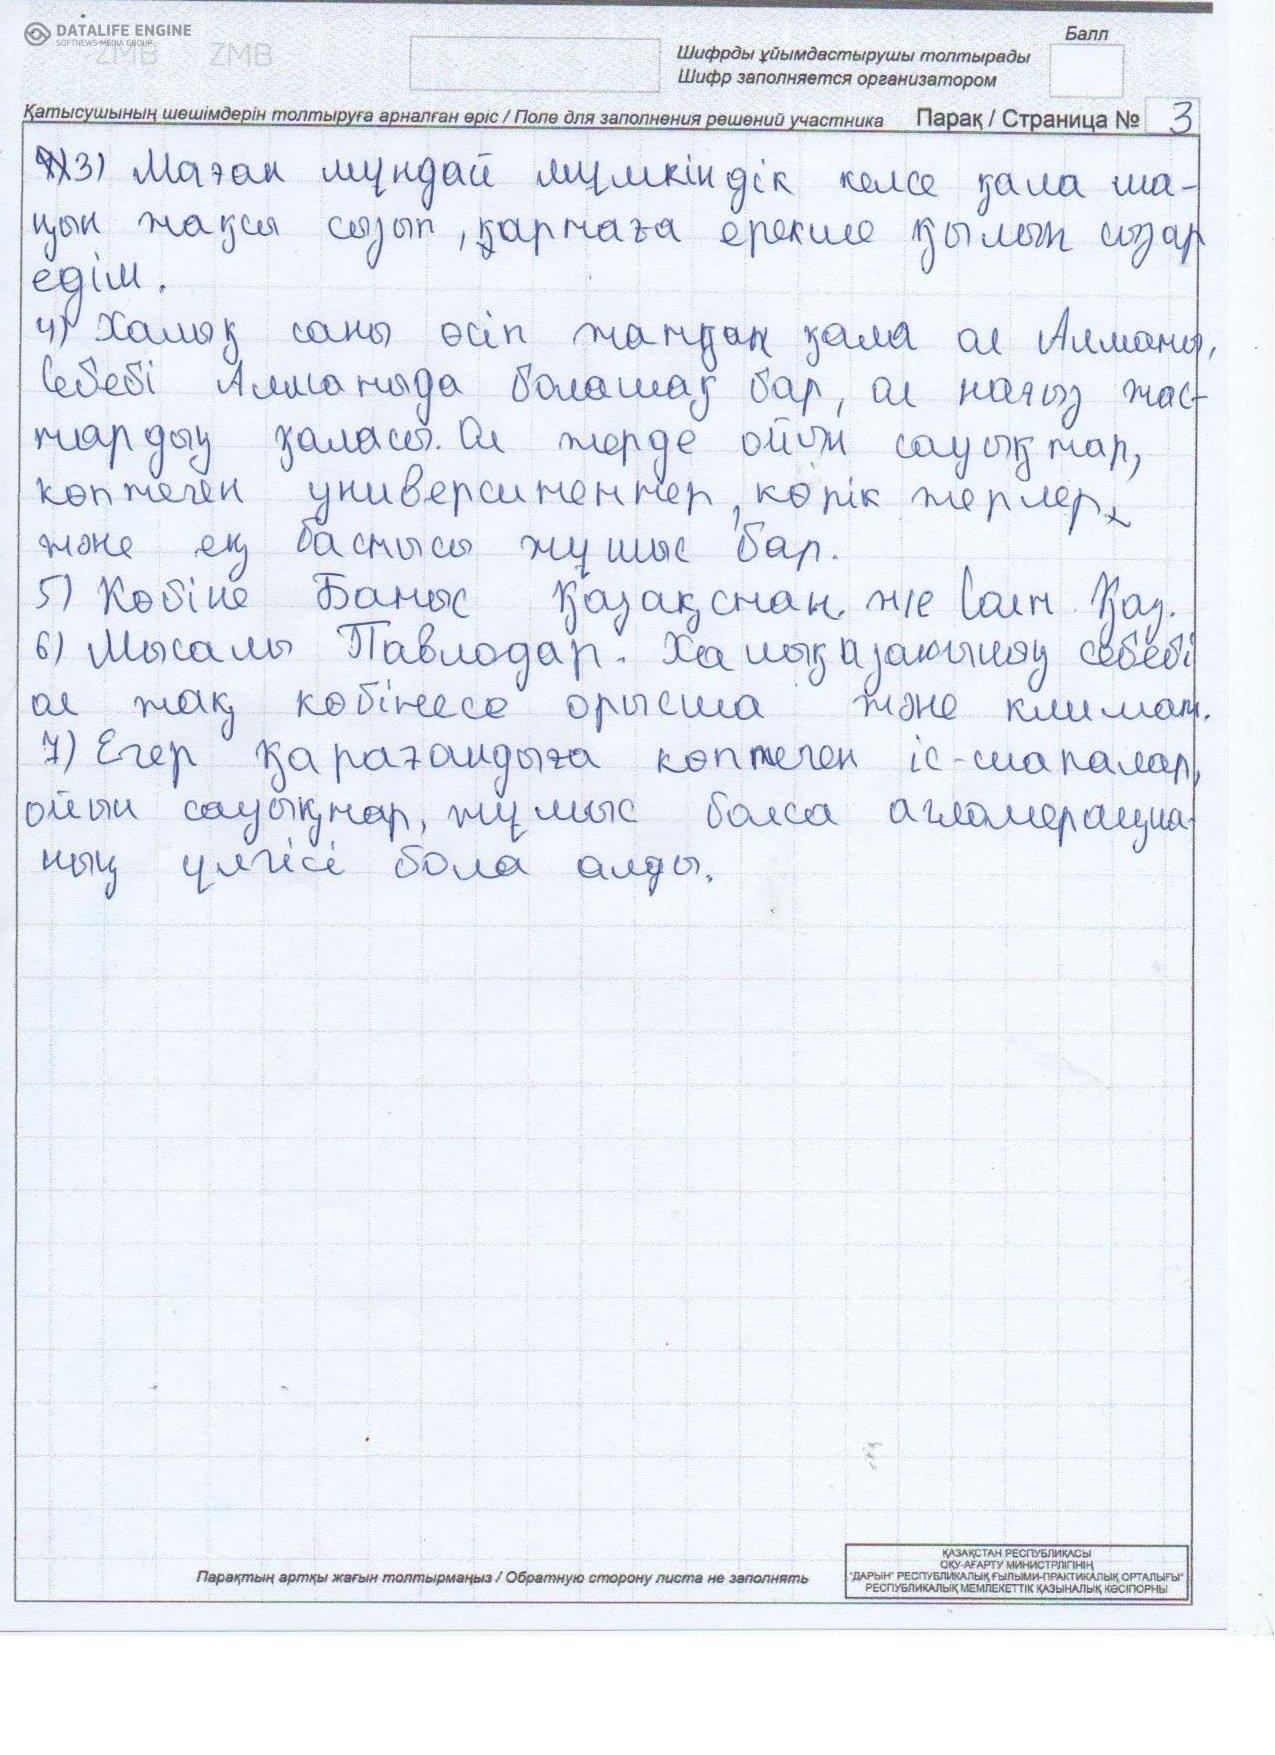 DATALIFE ENGINE
SOFTNEWS MEDIA GROUP
ZMB ZMB
Балл
Шифрды ұйымдастырушы толтырады
Шифр заполняется организатором
Қатысушының шешімдерін толтыруға арналған өріс / Поле для заполнения решений участника Парақ / Страница № 3
3) Маған мұндай мүмкіндік келсе қала ша-
ңын жақсы сызып, қартаға ерекше қылып сызар
едім.
4) Халық саны өсіп жатқан қала ол Алматы,
Себебі Алматыда болашақ бар, ол нағыз жас-
тардың қаласы. Ол жерде ойын сауықтар,
көптеген университеттер, көрік жерлер,
және ең бастысы жұмыс бар.
5) Көбіне Батыс Қазақстан. ж/е Солт Қаз.
6) Мысалы Павлодар. Халық азаюының себебі
ол жақ көбінесе орысша және климат.
7) Егер Қарағандыға көптеген іс-шаралар,
ойын сауықтар, жұмыс болса агломерация-
ның үлгісі бола алды.
Парақтың артқы жағын толтырмаңыз / Обратную сторону листа не заполнять
ҚАЗАҚСТАН РЕСПУБЛИКАСЫ
ОҚУ-АҒАРТУ МИНИСТРЛІГІНІҢ
"ДАРЫН" РЕСПУБЛИКАЛЫҚ ҒЫЛЫМИ-ПРАКТИКАЛЫҚ ОРТАЛЫҒЫ"
РЕСПУБЛИКАЛЫҚ МЕМЛЕКЕТТІК ҚАЗЫНАЛЫҚ КӘСІПОРНЫ